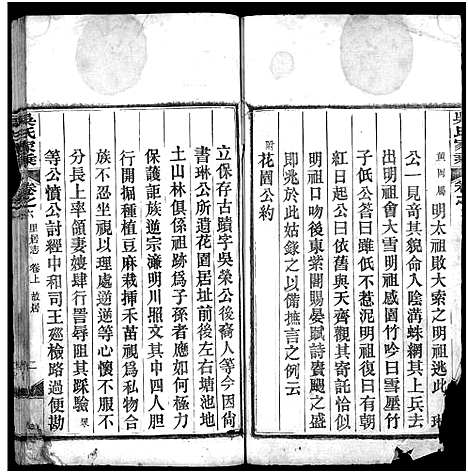 吳氏家乘
卷之
黃岡屬
明太祖敗大索之明祖逃此
公一見奇其貌命入陰溝蛛網其上兵去
出明祖會大雪明祖感園竹吟曰雪壓竹
子低公答曰雖低不惹泥明祖復曰有朝
紅日出公答曰依舊與天齊其徵兆恰似
明祖口吻後東縈閣賜晏賦詩衮颺之盛
即兆於此姑錄之以備撫言之例云
附
花園公約
立保存古蹟字吳榮公後裔人等今因倘
書琳公所遺花園居址前後左右塘池地
土山林俱係祖跡爲子孫者應如何極力
保護詎族逆宗濂明川照文其中四人胆
行開掘種荳麻栽揷禾苗視爲私物合
族不忍坐視以理處逆逆等心懷不服不
長於上率領妻婕肆行詈辱阻其踩驗
等公憤公討經中和司王廵檢路過便勘
吳氏家乘
卷之六
里居志
卷上
故居
二